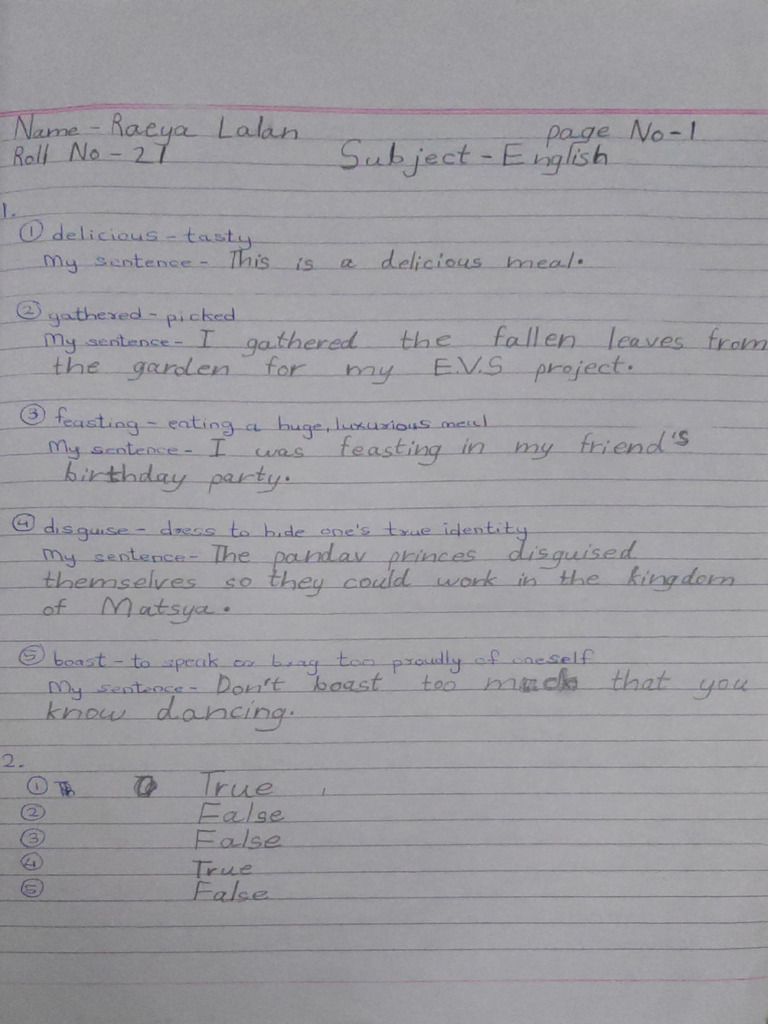 Name - Raeya Lalan
page No-1
Roll No - 27
Subject - English
1.
① delicious - tasty
My sentence - This is a delicious meal.
② gathered - picked
My sentence - I gathered the fallen leaves from
the garden for my E.V.S project.
③ feasting - eating a huge, luxurious meal
My sentence - I was feasting in my friend's
birthday party.
④ disguise - dress to hide one's true identity
My sentence - The pandav princes disguised
themselves so they could work in the kingdom
of Matsya.
⑤ boast - to speak or brag too proudly of oneself
My sentence - Don't boast too much that you
know dancing.
2.
① True
② False
③ False
④ True
⑤ False